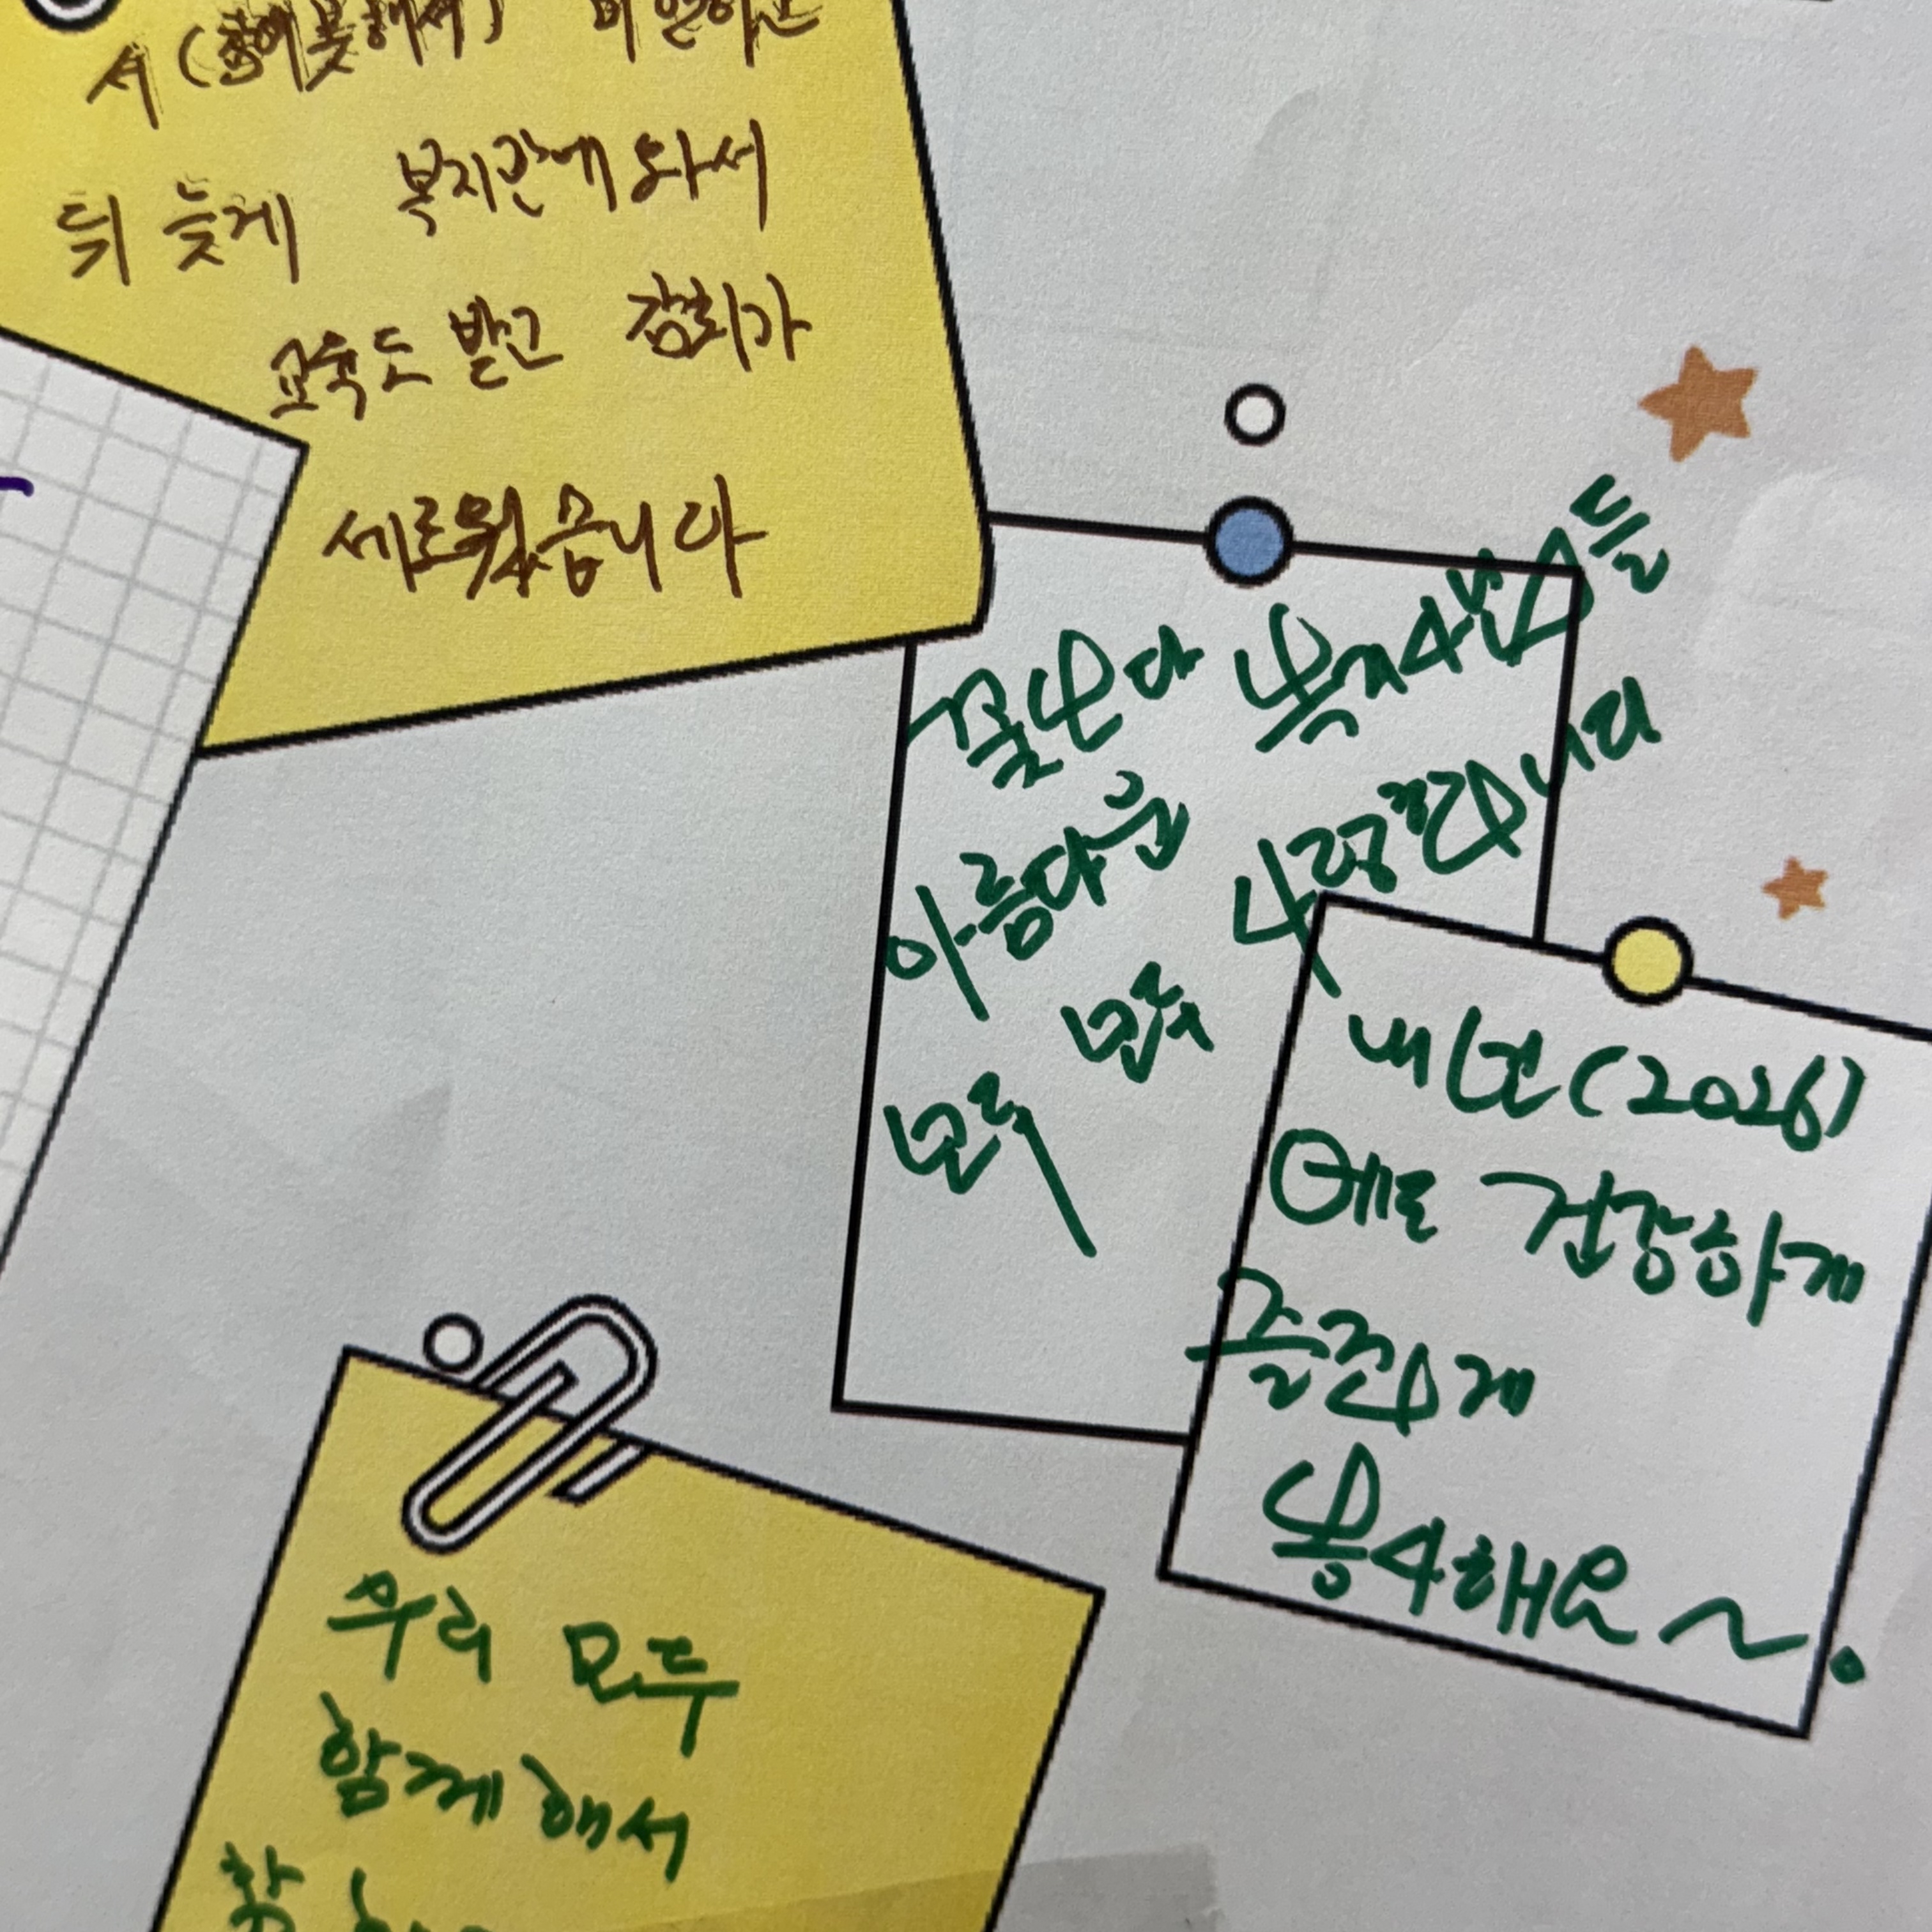 서 (참여못해서) 미안하고
뒤 늦게 복지관에 와서
교육도 받고 감회가
세로웠습니다
꽃보다 복지사님들
아름다운 사랑합니다
모두
모두
내년(2026)
에도 건강하게
즐겁게
봉사해요~.
우리 모두
함께해서
참